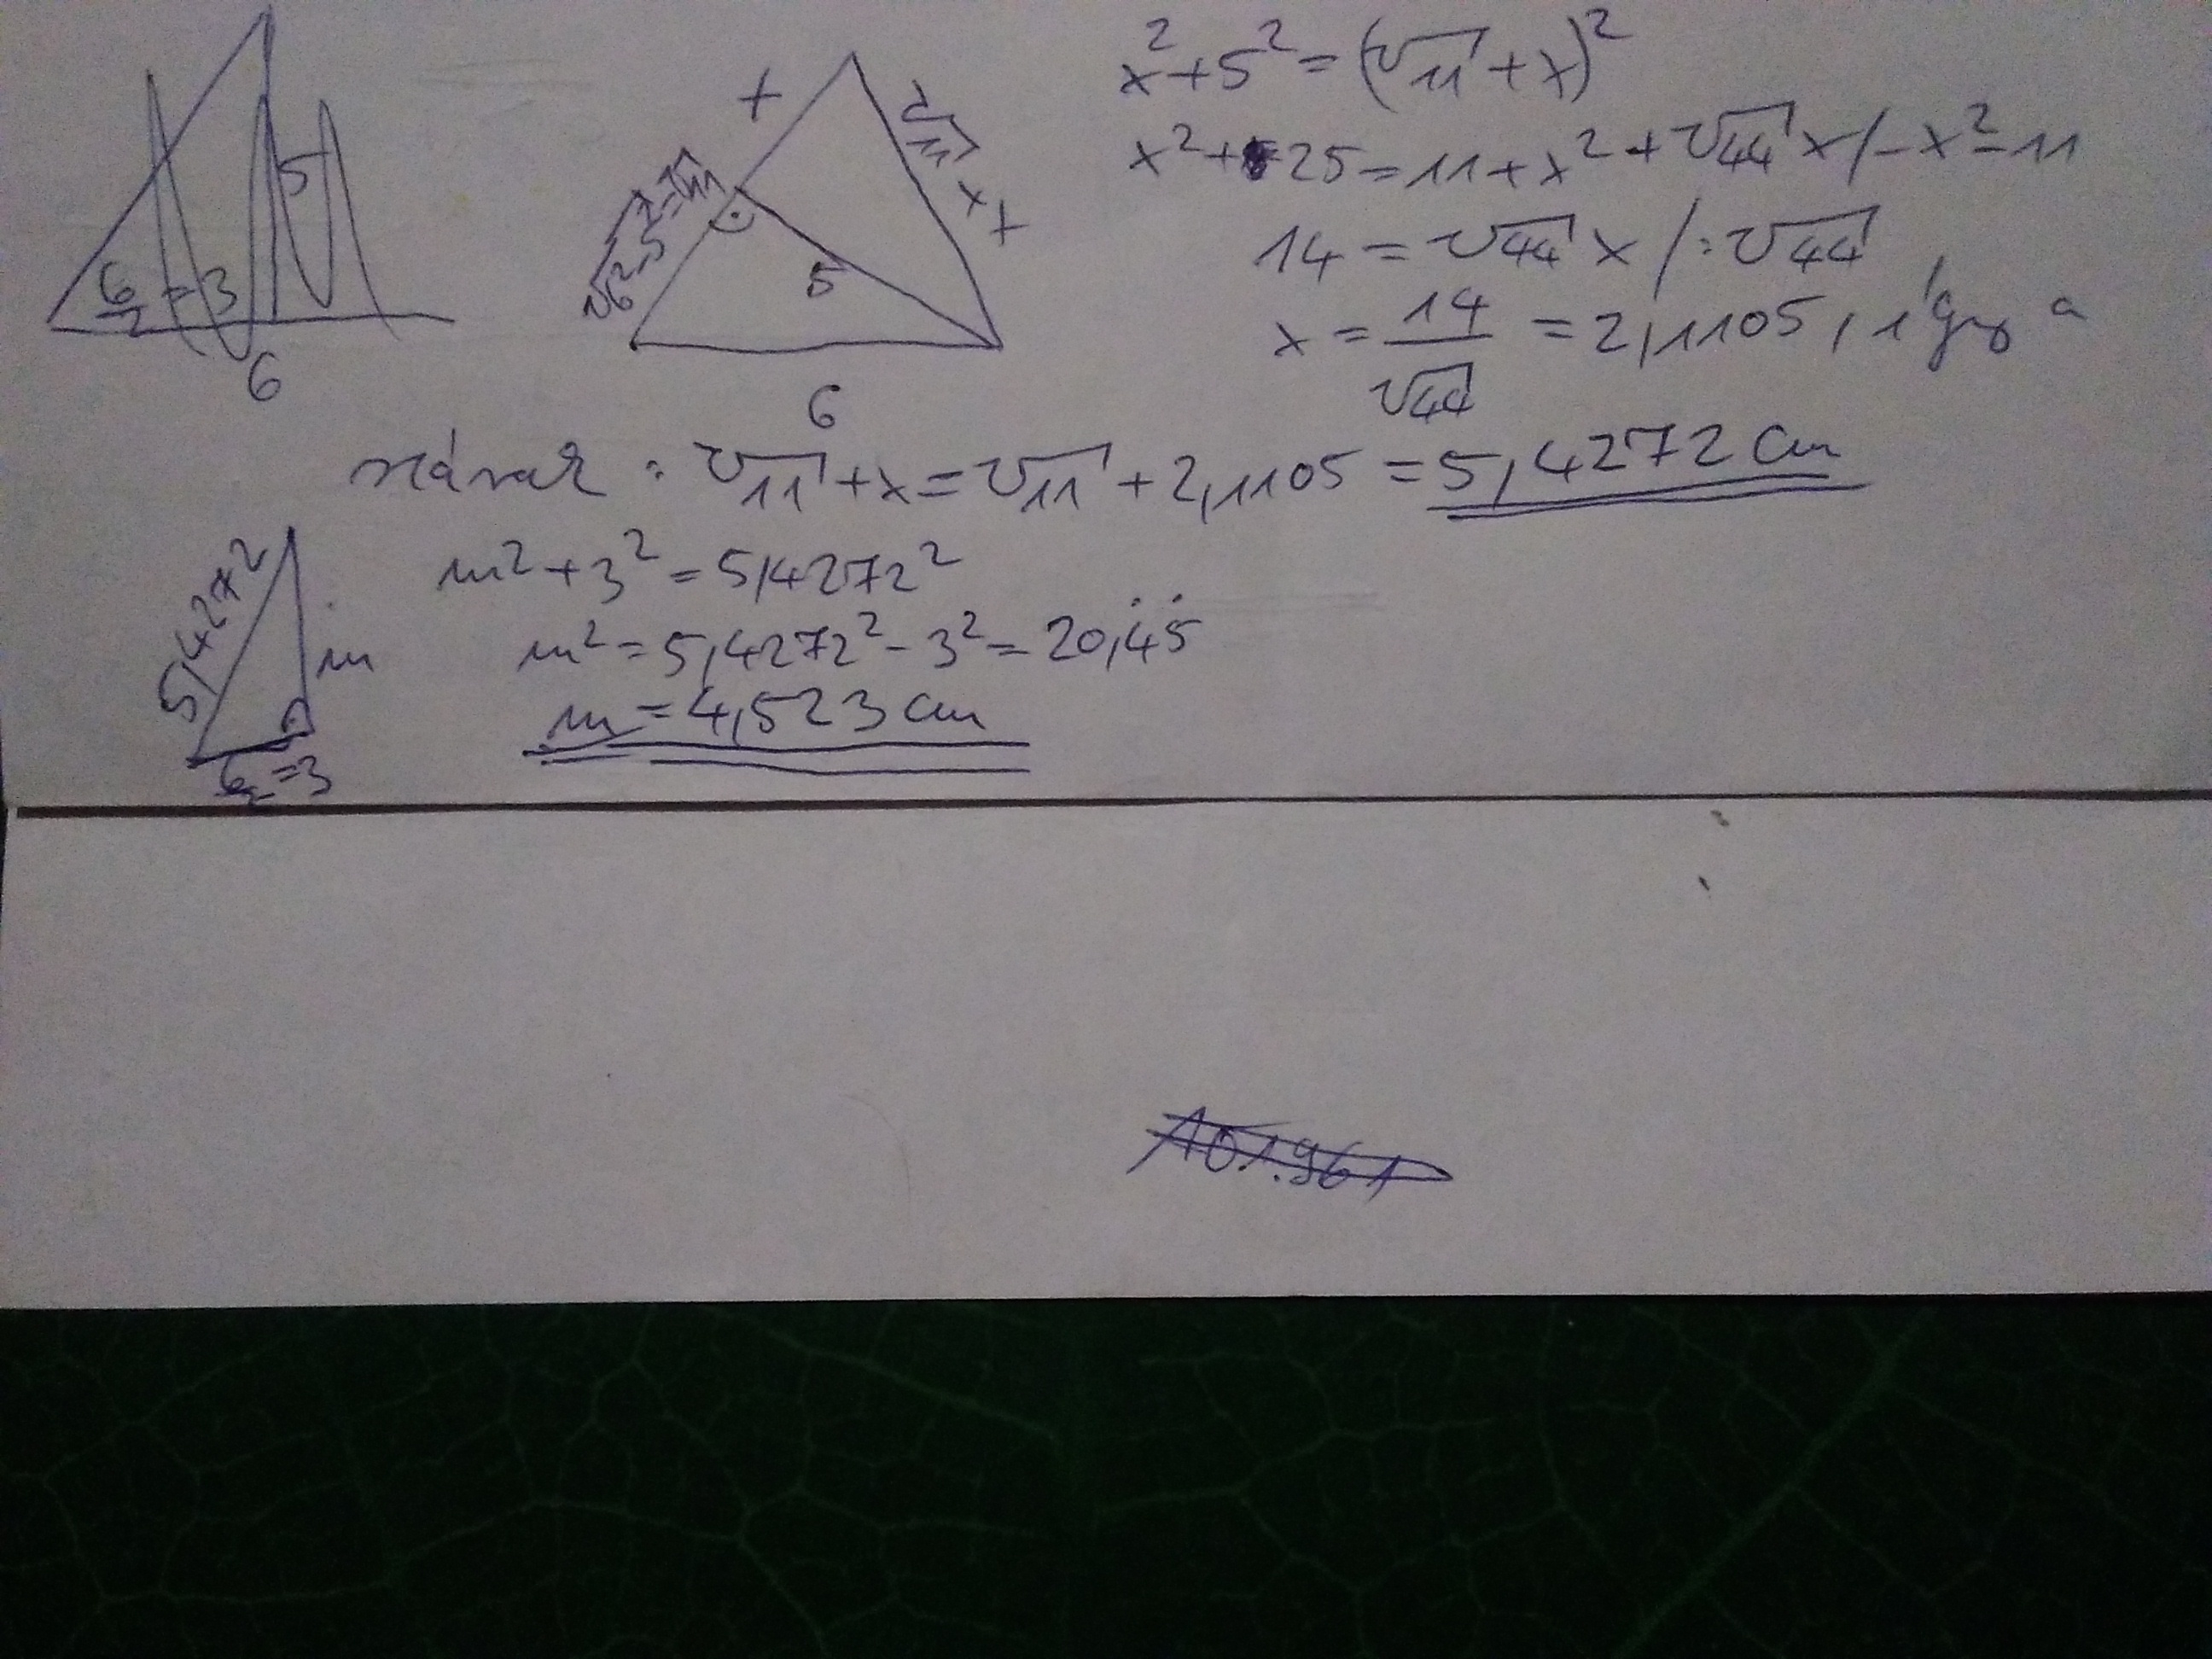 5
6/2 = 3
6
x
√6²-5² = √11
√11 + x
5
6
x² + 5² = (√11 + x)²
x² + 25 = 11 + x² + √44 x / -x² - 11
14 = √44 x / : √44
x = 14/√44 = 2,1105, így a
szárak : √11 + x = √11 + 2,1105 = 5,4272 cm
5,4272
m
6/2 = 3
m² + 3² = 5,4272²
m² = 5,4272² - 3² = 20,45
m = 4,523 cm
101.961